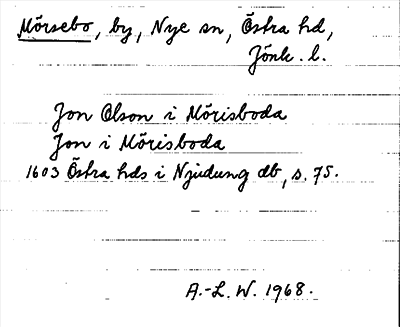 Mörsebo, by, Nye sn, Östra hd,
Jönk. l.
Jon Olson i Mörisboda
Jon i Mörisboda
1603 Östra hds i Njudung db, s. 75.
A.-L. W. 1968.